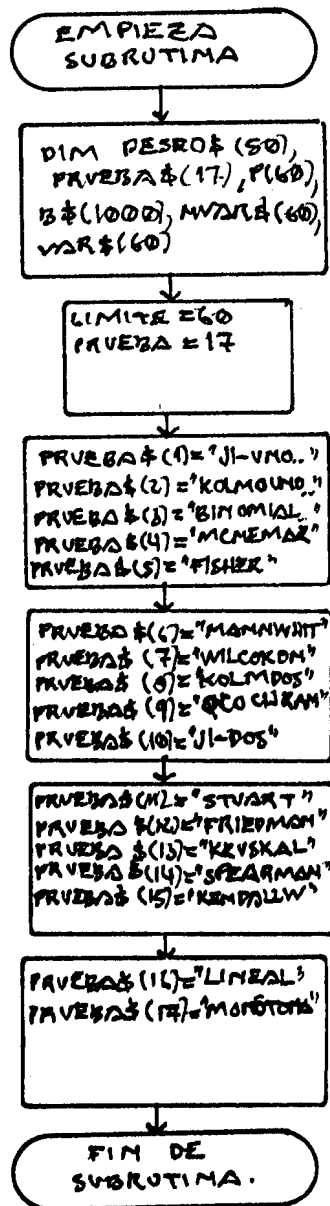 EMPIEZA
SUBRUTINA
DIM DESRO$(50),
PRUEBA$(17), P(60),
B$(1000), MVAR$(60),
VAR$(60)
LIMITE = 60
PRUEBA = 17
PRUEBA$(1)="JI-UNO.."
PRUEBA$(2)="KOLMOUNO.."
PRUEBA$(3)="BINOMIAL.."
PRUEBA$(4)="MCNEMAR
PRUEBA$(5)="FISHER"
PRUEBA$(6)="MANNWHIT"
PRUEBA$(7)="WILCOXON"
PRUEBA$(8)="KOLMDOS"
PRUEBA$(9)="QCOCHRAN"
PRUEBA$(10)="JI-DOS"
PRUEBA$(11)="STUART"
PRUEBA$(12)="FRIEDMAN"
PRUEBA$(13)="KRUSKAL
PRUEBA$(14)="SPEARMAN"
PRUEBA$(15)="KENDALLW"
PRUEBA$(16)="LINEAL"
PRUEBA$(17)="MONÓTONA"
FIN DE
SUBRUTINA.